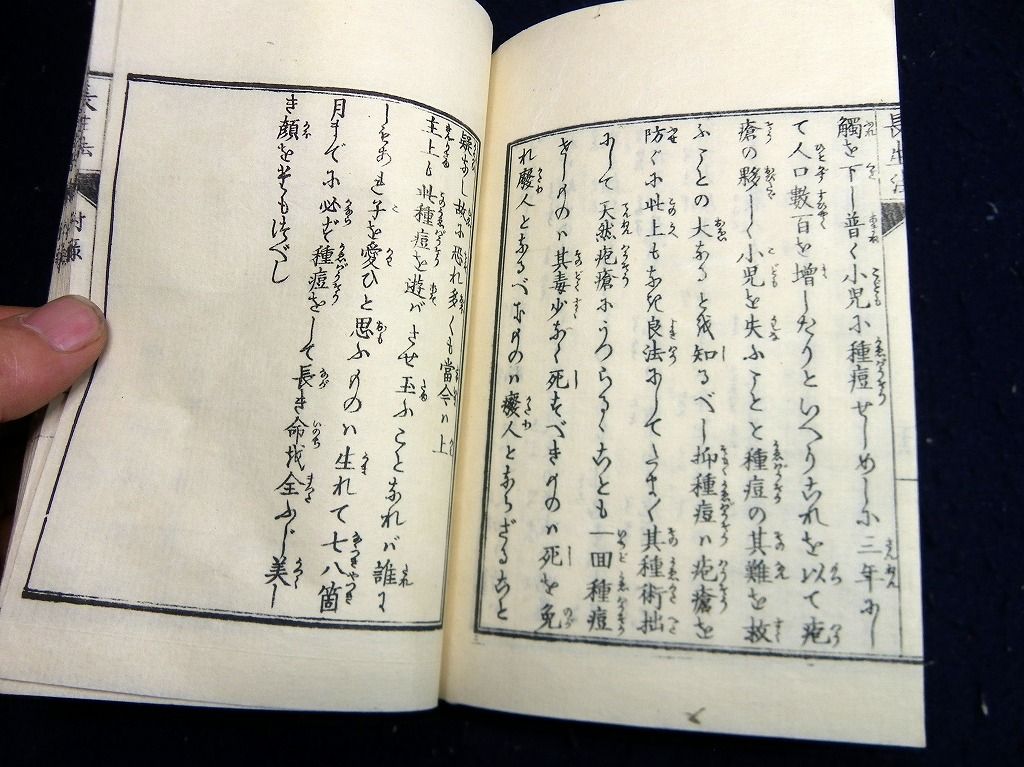 觸を下し普く小児に種痘せしめしに三年にし
て人口數百を増したりといへりこれを以て疱
瘡の夥しく小児を失ふことと種痘の其難を救
ふことの大なるとを知るべし抑種痘ハ疱瘡を
防ぐに此上もなき良法にしてたまく其種術拙
にして天然疱瘡にうつらるゝことも一回種痘
せしものハ其毒少なく死すべきものハ死を免
れ廢人となるべきものハ癈人とならざること
疑なし故に恐れ多くも當今ハ上
主上も此種痘を遊バさせ玉ふことなれバ誰に
しもあれ子を愛ひと思ふものハ生れて七八箇
月までに必ず種痘をして長き命を全ふし美し
き顔をたもつべし
長生法
長生法
附録